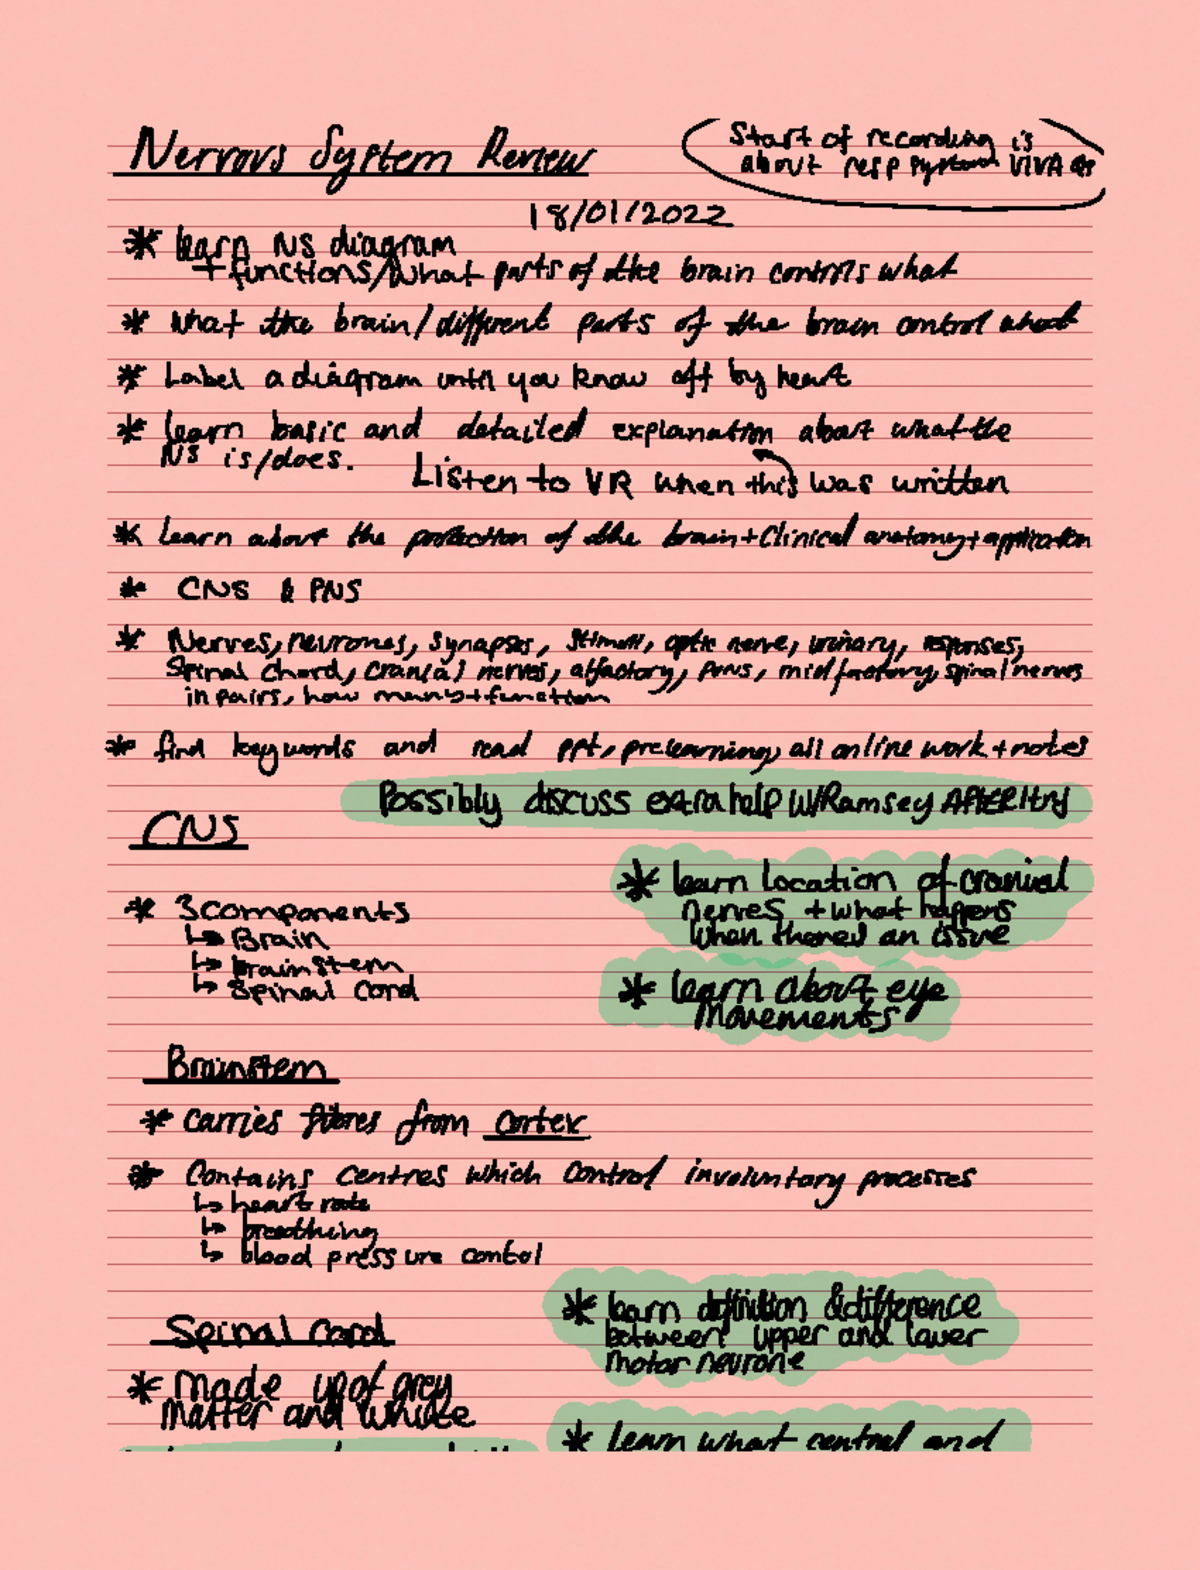 Nervous System Review
Start of recording is
about resp system VIVA
18/01/2022
* learn NS diagram
+ functions/What parts of the brain controls what
* What the brain/different parts of the brain control what
* Label a diagram until you know off by heart
* learn basic and detailed explanation about what the
NS is/does.
Listen to VR when this was written
* Learn about the protection of the brain + Clinical anatomy + application
* CNS & PNS
* Nerves, neurones, synapses, stimuli, optic nerve, urinary, responses,
Spinal Chord, cranial nerves, olfactory, pons, spinal nerves
in pairs, how many + function
* find keywords and read ppt, prelearning, all online work + notes
Possibly discuss extra help w/Ramsey AFTER I try
CNS
* 3 components
↳ Brain
↳ brainstem
↳ Spinal cord
* learn location of cranial
nerves + what happens
when theres an issue
* learn about eye
Movements
Brainstem
* carries fibres from cortex
* Contains centres which control involuntary processes
↳ heart rate
↳ breathing
↳ blood pressure control
* learn definition & difference
between upper and lower
motor neurone
Spinal cord
* Made up of grey
Matter and white
* learn what central and